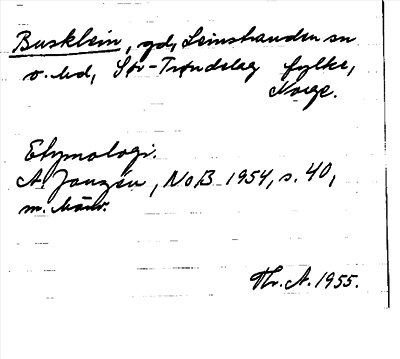 Busklein, gd, Leinstranden sn
o. hd, Sør-Trøndelag fylke,
Norge.
Etymologi.
A. Janzén, NoB 1954, s. 40,
m. hänv.
Thr. A. 1955.